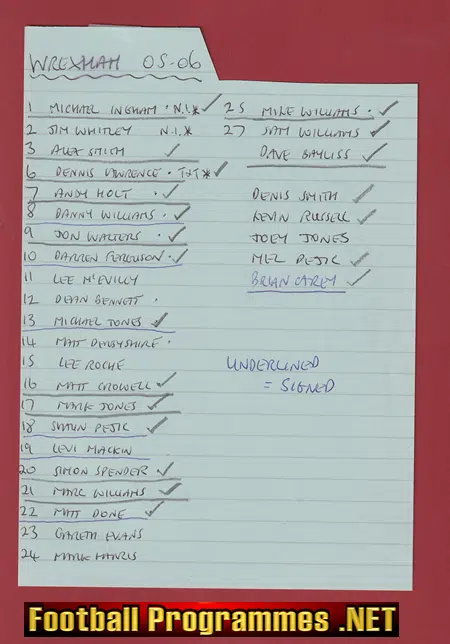 WREXHAM 05-06
1 MICHAEL INGHAM · N.I* ✓
2 JIM WHITLEY N.I.*
3 ALEX SMITH ✓
6 DENNIS LAWRENCE · T+T* ✓
7 ANDY HOLT ✓
8 DANNY WILLIAMS · ✓
9 JON WALTERS · ✓
10 DARREN FERGUSON · ✓
11 LEE McEVILLY
12 DEAN BENNETT ·
13 MICHAEL JONES ✓
14 MATT DERBYSHIRE ·
15 LEE ROCHE
16 MATT CROWELL ✓
17 MARK JONES ✓
18 SHAUN PEJIC ✓
19 LEVI MACKIN
20 SIMON SPENDER ✓
21 MARC WILLIAMS ✓
22 MATT DONE ✓
23 GARETH EVANS
24 MARK HARRIS
25 MIKE WILLIAMS · ✓
27 SAM WILLIAMS ✓
DAVE BAYLISS ✓
DENIS SMITH ✓
KEVIN RUSSELL ✓
JOEY JONES
MEL PEJIC ✓
BRIAN CAREY ✓
UNDERLINED
= SIGNED
Football Programmes .NET